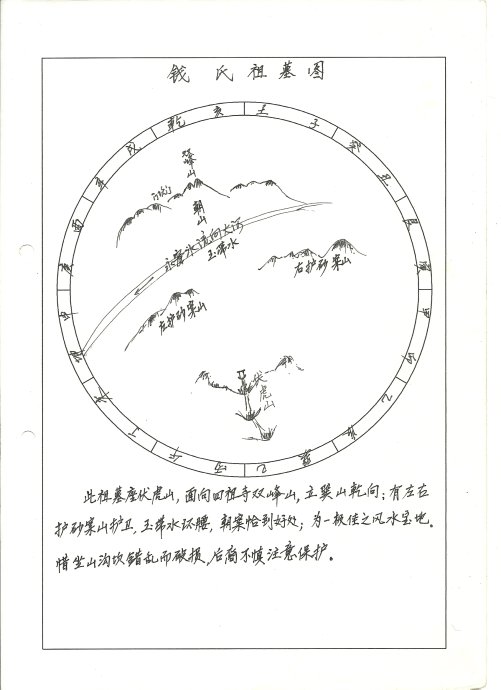 钱氏祖墓图
乾 亥 壬 子 癸 丑 艮 寅 甲 卯 乙 辰 巽 巳 丙 午 丁 未 坤 申 庚 酉 辛 戌
双峰山
朝山
流向大河
玉带水
右护砂案山
左护砂案山
伏虎山
此祖墓座伏虎山，面向四祖寺双峰山，立巽山乾向；有左右
护砂案山护卫，玉带水环腰，朝案恰到好处；为一极佳之风水宝地。
惜坐山沟坎错乱而破损，后裔不慎注意保护。